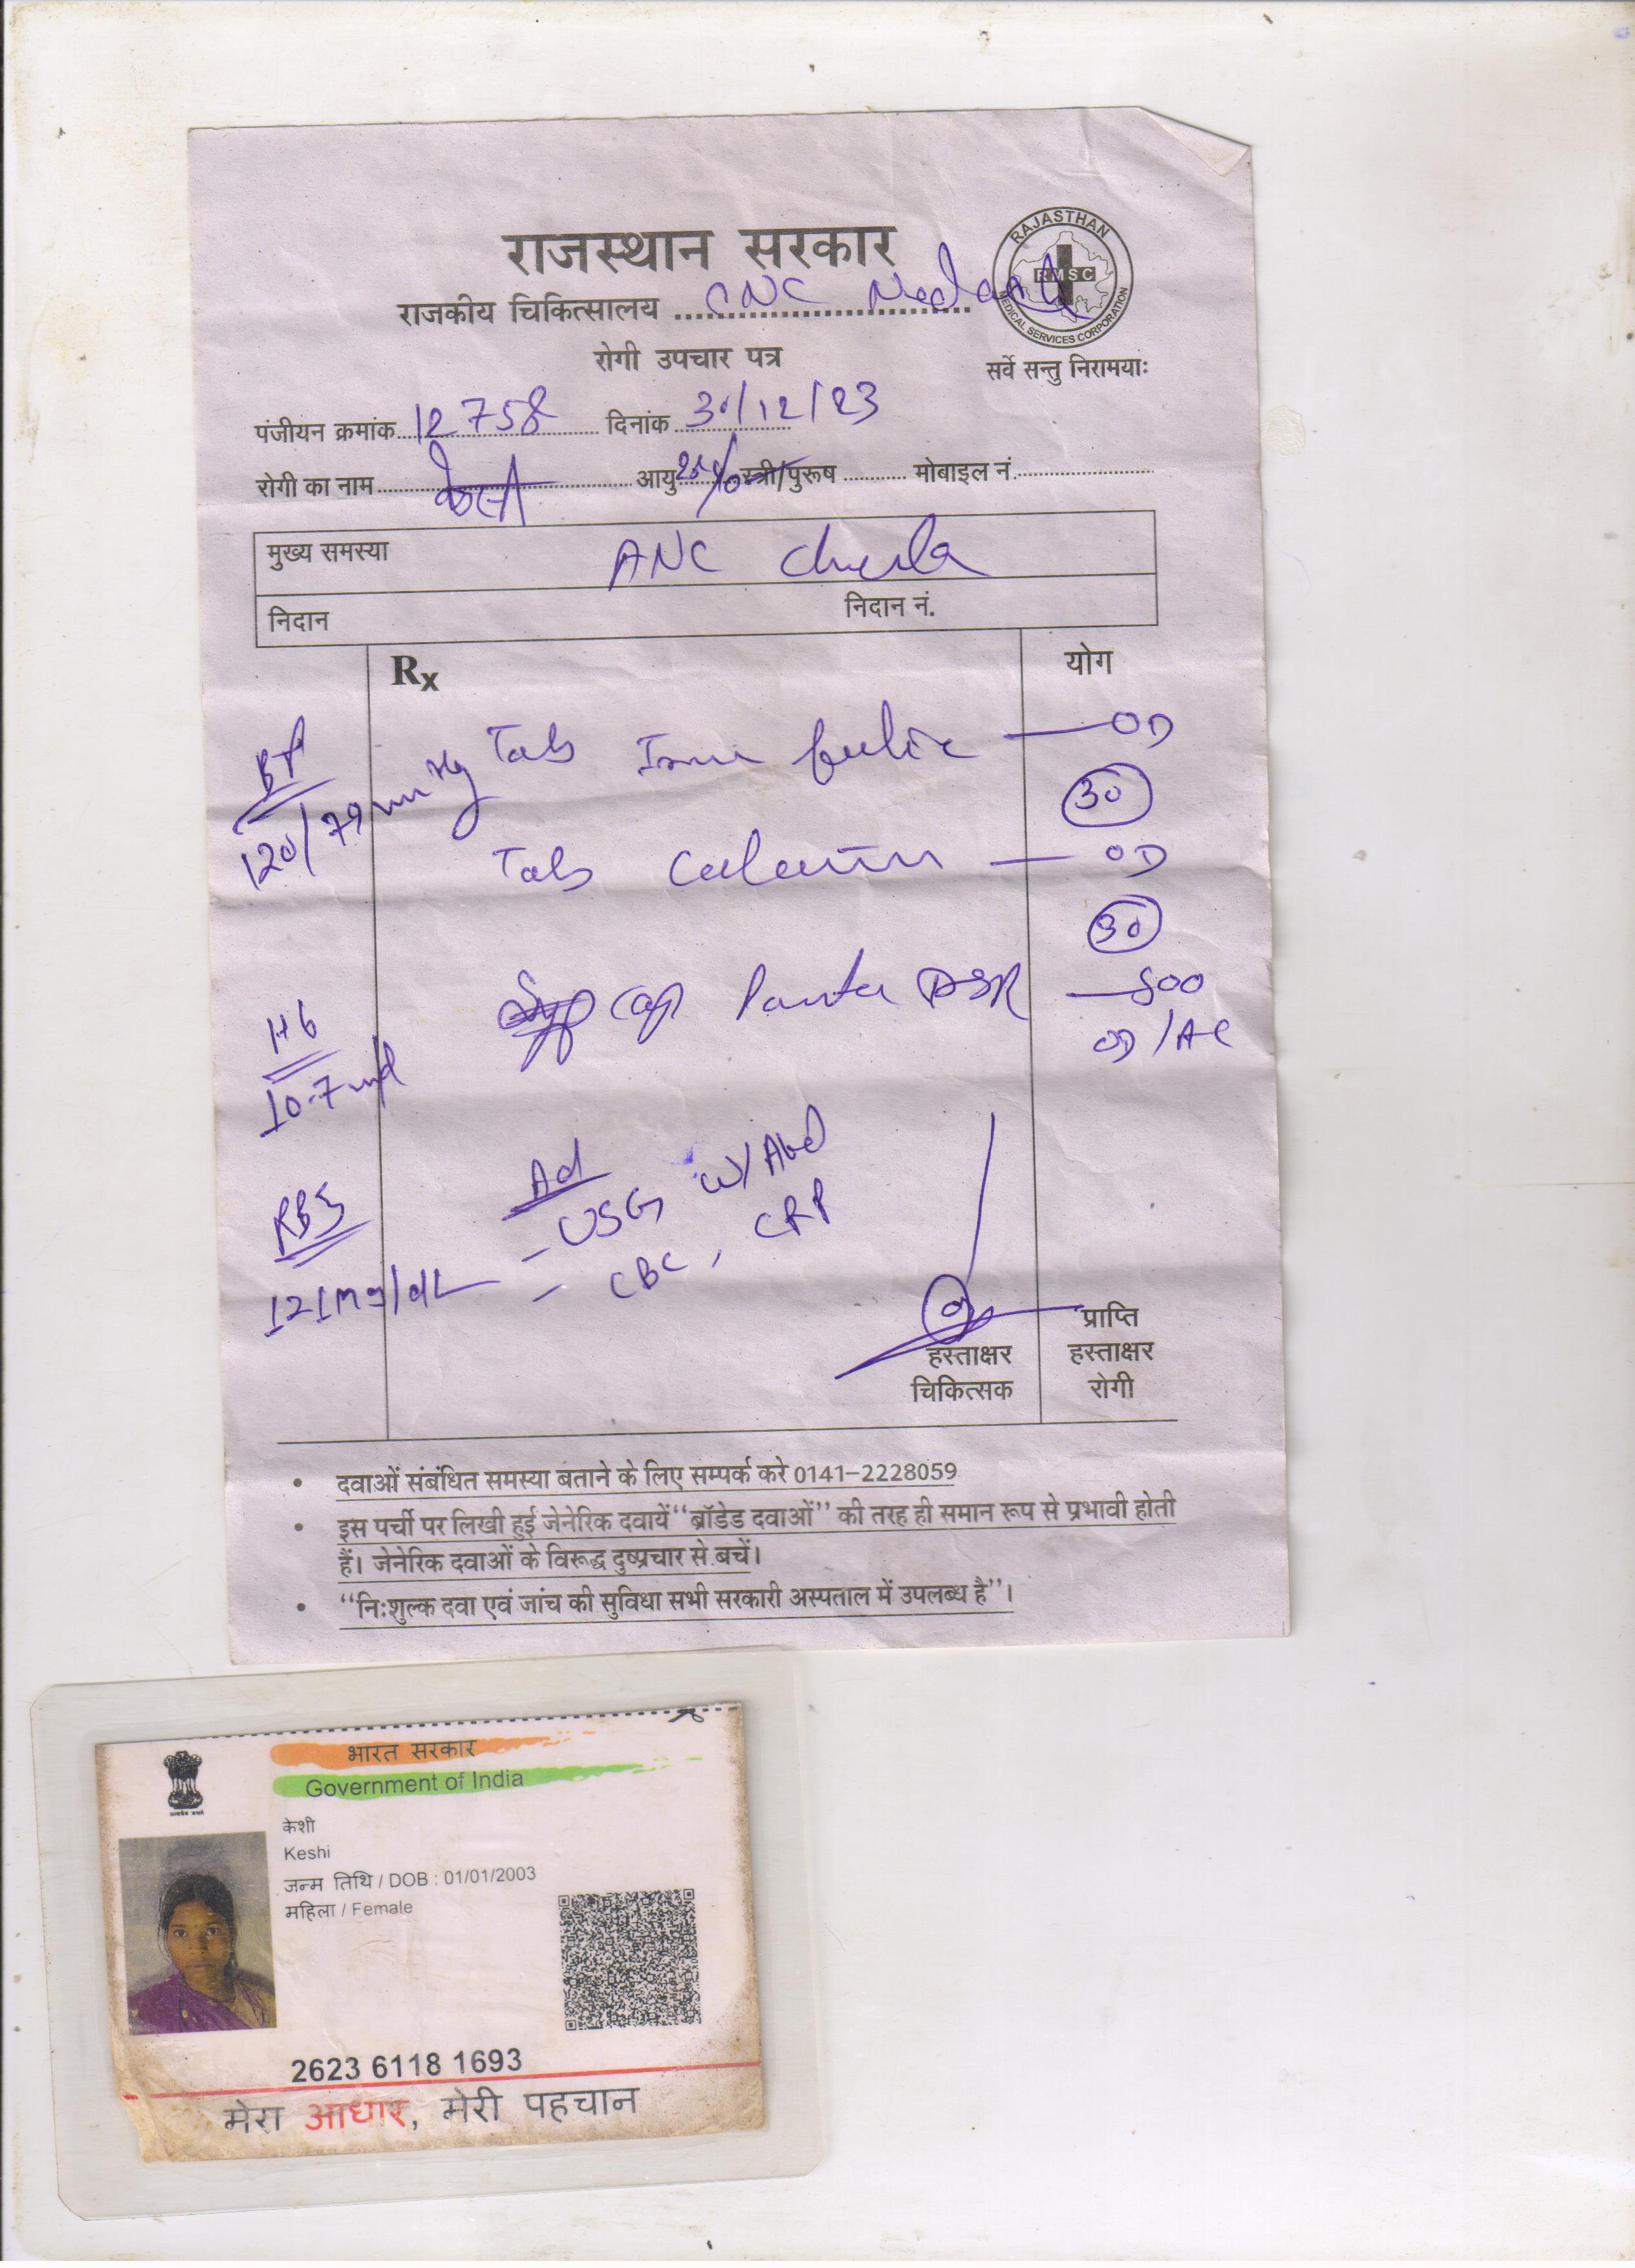 राजस्थान सरकार
राजकीय चिकित्सालय CNC
RAJASTHAN
RMSC
MEDICAL SERVICES CORPORATION
रोगी उपचार पत्र
सर्वे सन्तु निरामयाः
पंजीयन क्रमांक 12758 दिनांक 30/12/23
रोगी का नाम आयु स्त्री/पुरूष मोबाइल नं.
मुख्य समस्या ANC
निदान निदान नं.
Rx योग
BP
120/79 mm Hg
Tab Iron folic — OD
30
Tab Calcium — OD
30
Cap Panta DSR —
OD/AC
Hb
10.7
RBS
121mg/dL
Ad
- USG W/Abd
- CBC, CRP
हस्ताक्षर
चिकित्सक
प्राप्ति
हस्ताक्षर
रोगी
• दवाओं संबंधित समस्या बताने के लिए सम्पर्क करे 0141-2228059
• इस पर्ची पर लिखी हुई जेनेरिक दवायें "ब्रॉडेड दवाओं" की तरह ही समान रूप से प्रभावी होती
हैं। जेनेरिक दवाओं के विरूद्ध दुष्प्रचार से बचें।
• "निःशुल्क दवा एवं जांच की सुविधा सभी सरकारी अस्पताल में उपलब्ध है"।
भारत सरकार
Government of India
केशी
Keshi
जन्म तिथि / DOB : 01/01/2003
महिला / Female
2623 6118 1693
मेरा आधार, मेरी पहचान